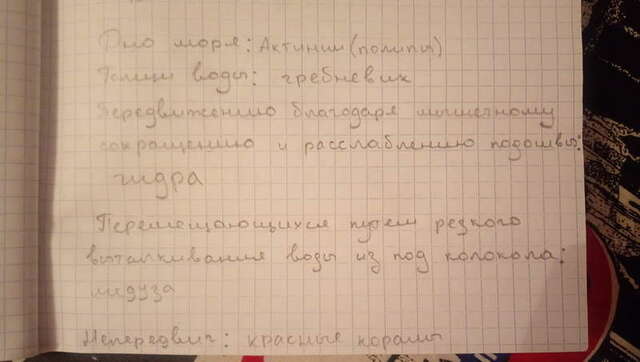 Дно моря: Актинии (полипы)
Толщи воды: гребневик
Передвижению благодаря мышечному
сокращению и расслаблению подошвы:
гидра
Перемещающихся путем резкого
выталкивания воды из под колокола:
медуза
Непередвиг: красные коралы